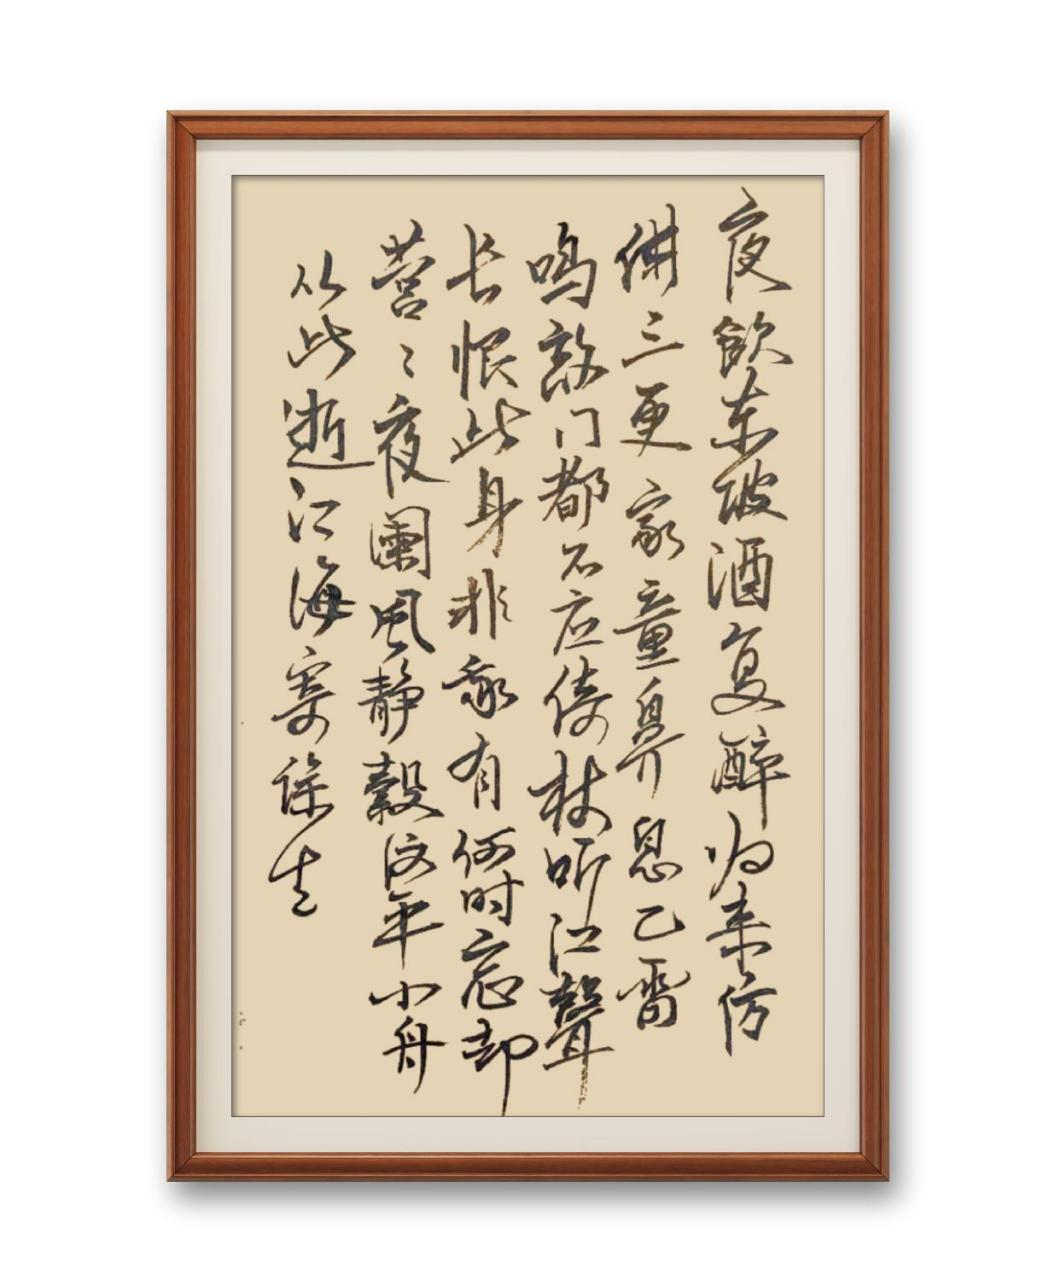 夜飲东坡酒复醉归来仿
佛三更家童鼻息已雷
鸣敲门都不应倚杖听江聲
长恨此身非我有何时忘却
营々夜阑風静縠纹平小舟
从此逝江海寄馀生